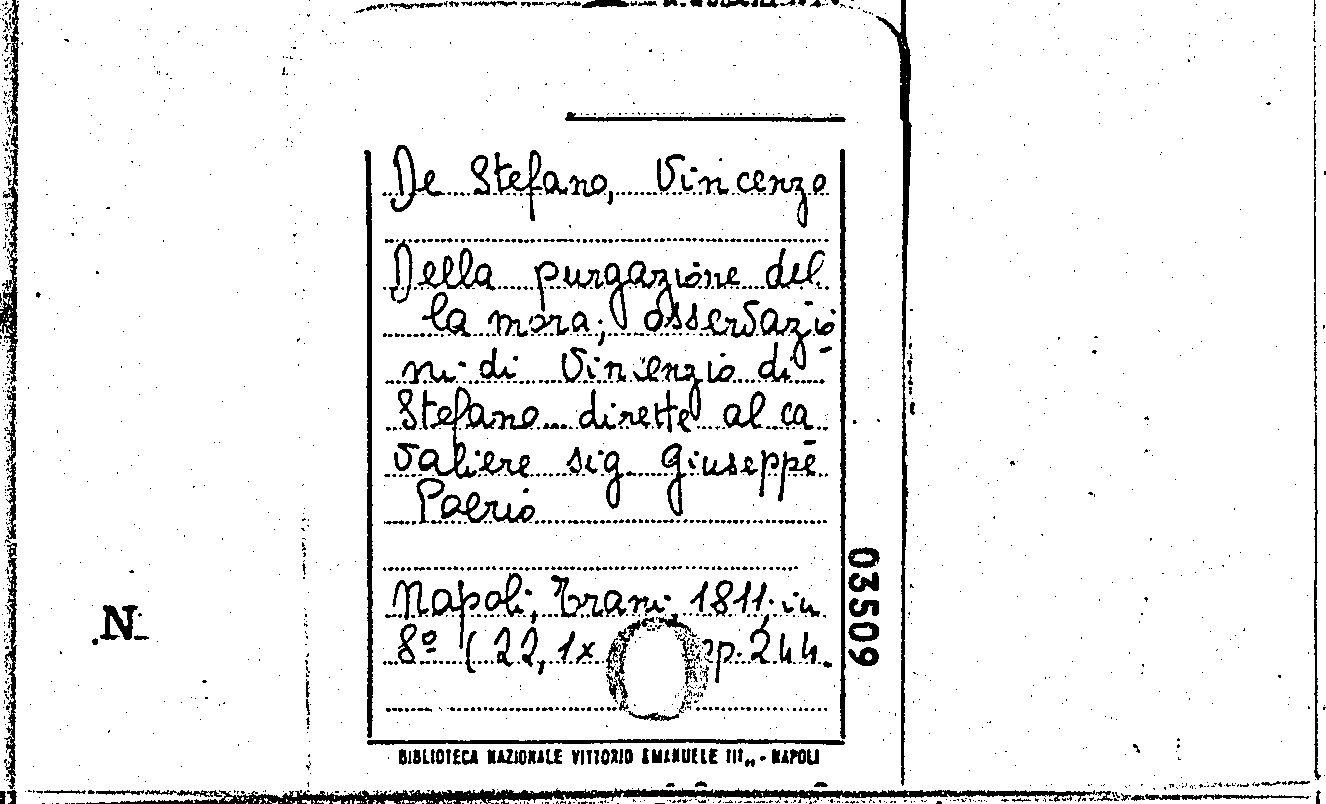 De Stefano, Vincenzo
Della purgazione del
la mora; osservazio
ni di Vincenzio di
Stefano... dirette al ca
valiere sig. Giuseppe
Poerio
Napoli, Trani, 1811, in
8º (22, 1x pp. 244.
03509
N
BIBLIOTECA NAZIONALE VITTORIO EMANUELE III„ - NAPOLI